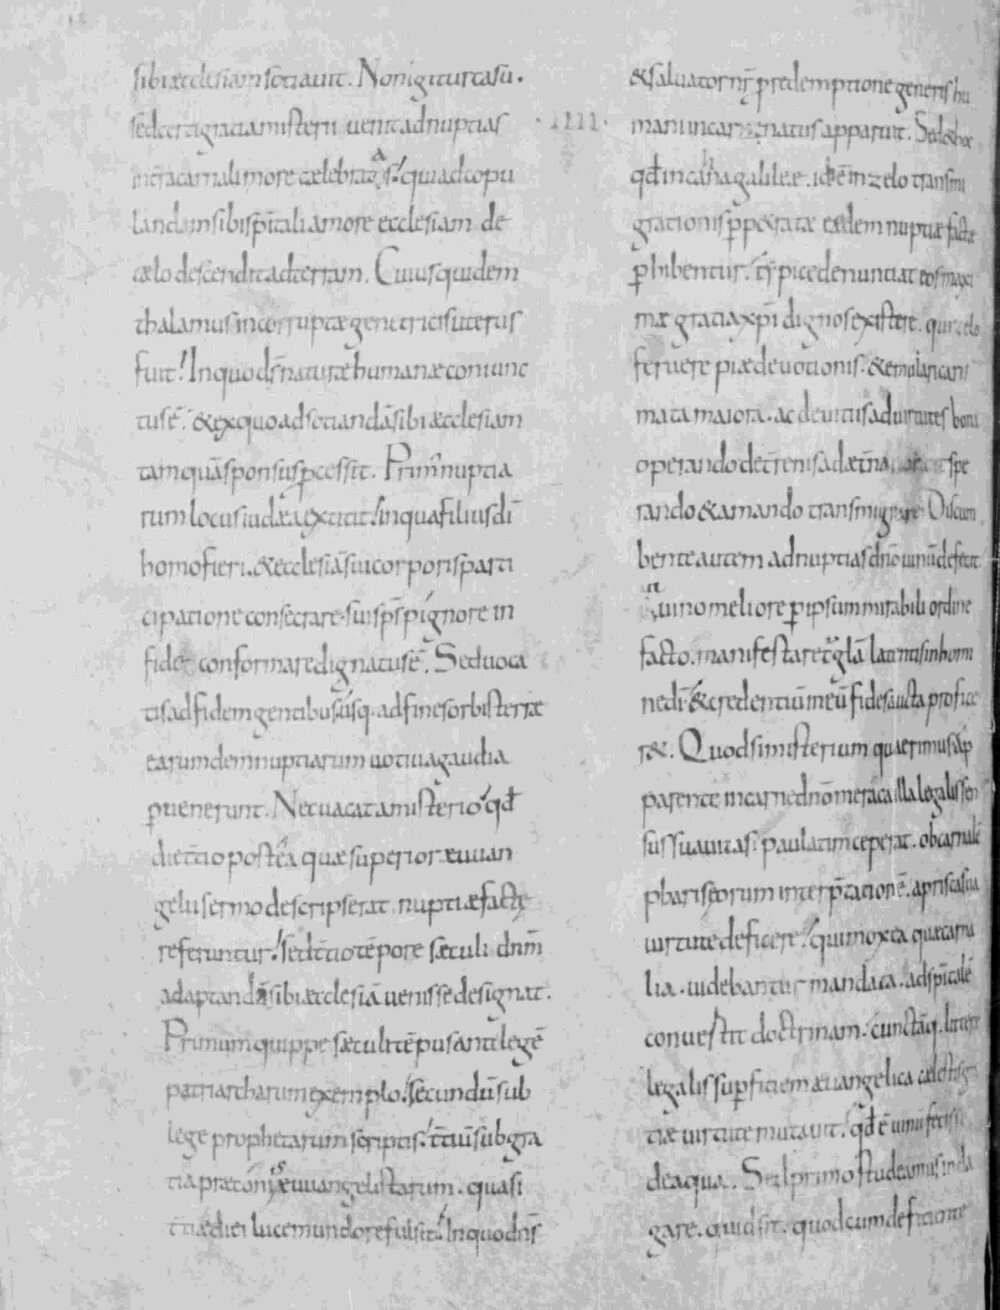 sibi æcclesiam sotiavit. Non igitur casū.
sed certi gratia misterii venit ad nuptias
in t̄ra carnali more cælebratas; qui ad copu
landam sibi sp̄itali amore ecclesiam de
cælo descendit ad terram. Cuius quidem
thalamus incorruptæ genitricis uterus
fuit; In quo ds̄ naturæ humanæ coniunc
tus ē. & ex quo ad sotiandā sibi æcclesiam
tamquā sponsus p̄cessit. Primū nuptia
rum locus iudæa extitit; in qua filius dī
homo fieri. & ecclesiā sui corporis parti
cipatione consecrare. sui sp̄s pignore in
fide conformare dignatus ē. Sed voca
tis ad fidem gentibus; usq. ad fines orbis terræ
earumdem nuptiarum votiva gaudia
p̄venerunt. Nec vacat a misterio; qđ
die t̄tio post ea quæ superior ævvan
gelii sermo descripserat. nuptiæ factę
referuntur; sed t̄tio tēpore sæculi dn̄m
ad aptandā sibi æcclesiā venisse designat.
Primum quippe sæculi tēpus ante legē
patriarcharum exemplo; secundū sub
lege prophetarum scriptis; t̄tiū sub gra
tia præconiis ævvangelistarum. quasi
t̄tiæ diei luce mundo refulsit; In quo dn̄s
& salvator nr̄ p̄ redemptione generis hu
· IIII · mani in carne natus apparuit. Sed & hoc
qđ in cana galileæ. id ē in zelo transmi
grationis p̄petratæ eædem nuptiæ factæ
p̄hibentur; typice denuntiat eos maxi
mæ gratia xpī dignos existere. qui zelo
fervere piæ devotionis. & emulari caris
mata maiora. ac de vitiis ad virtutes bona
operando de t̄renis ad æt̄na spe
rando & amando transmigrare. Discum
bente autem ad nuptias dn̄o vinū defecit.
ut vino meliore p̄ ipsum mirabili ordine
facto. manifestaretur gl̄a latentis in homi
ne dī; & credentiū in eū fides aucta profice
r&. Quod si misterium quærimus; ap
parente in carne dn̄o meraca illa legalis sen
sus suavitas. paulatim ceperat. ob carnalē
phariseorum interp̄tationē. a prisca sua
virtute deficere; qui mox ea quæ carna
lia. videbantur mandata. ad sp̄italē
convertit doctrinam. cunctāq. litteræ
legalis sup̄ficiem ævangelica cælestis gra
tiæ virtute mutavit; qđ ē vinū fecisse
de aqua. Sed primo studeamus inda
gare. quid sit. quod cum deficiente